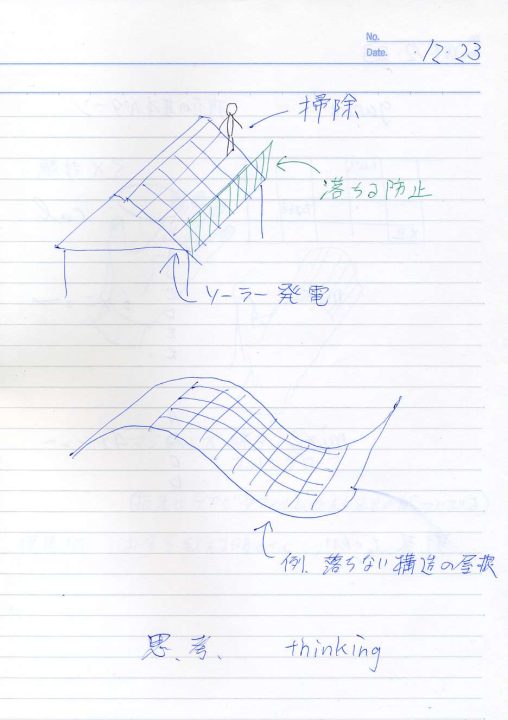 No.
Date. ・12・23
掃除
落ちる防止
ソーラー発電
例、落ちない構造の屋根
思、考、 thinking